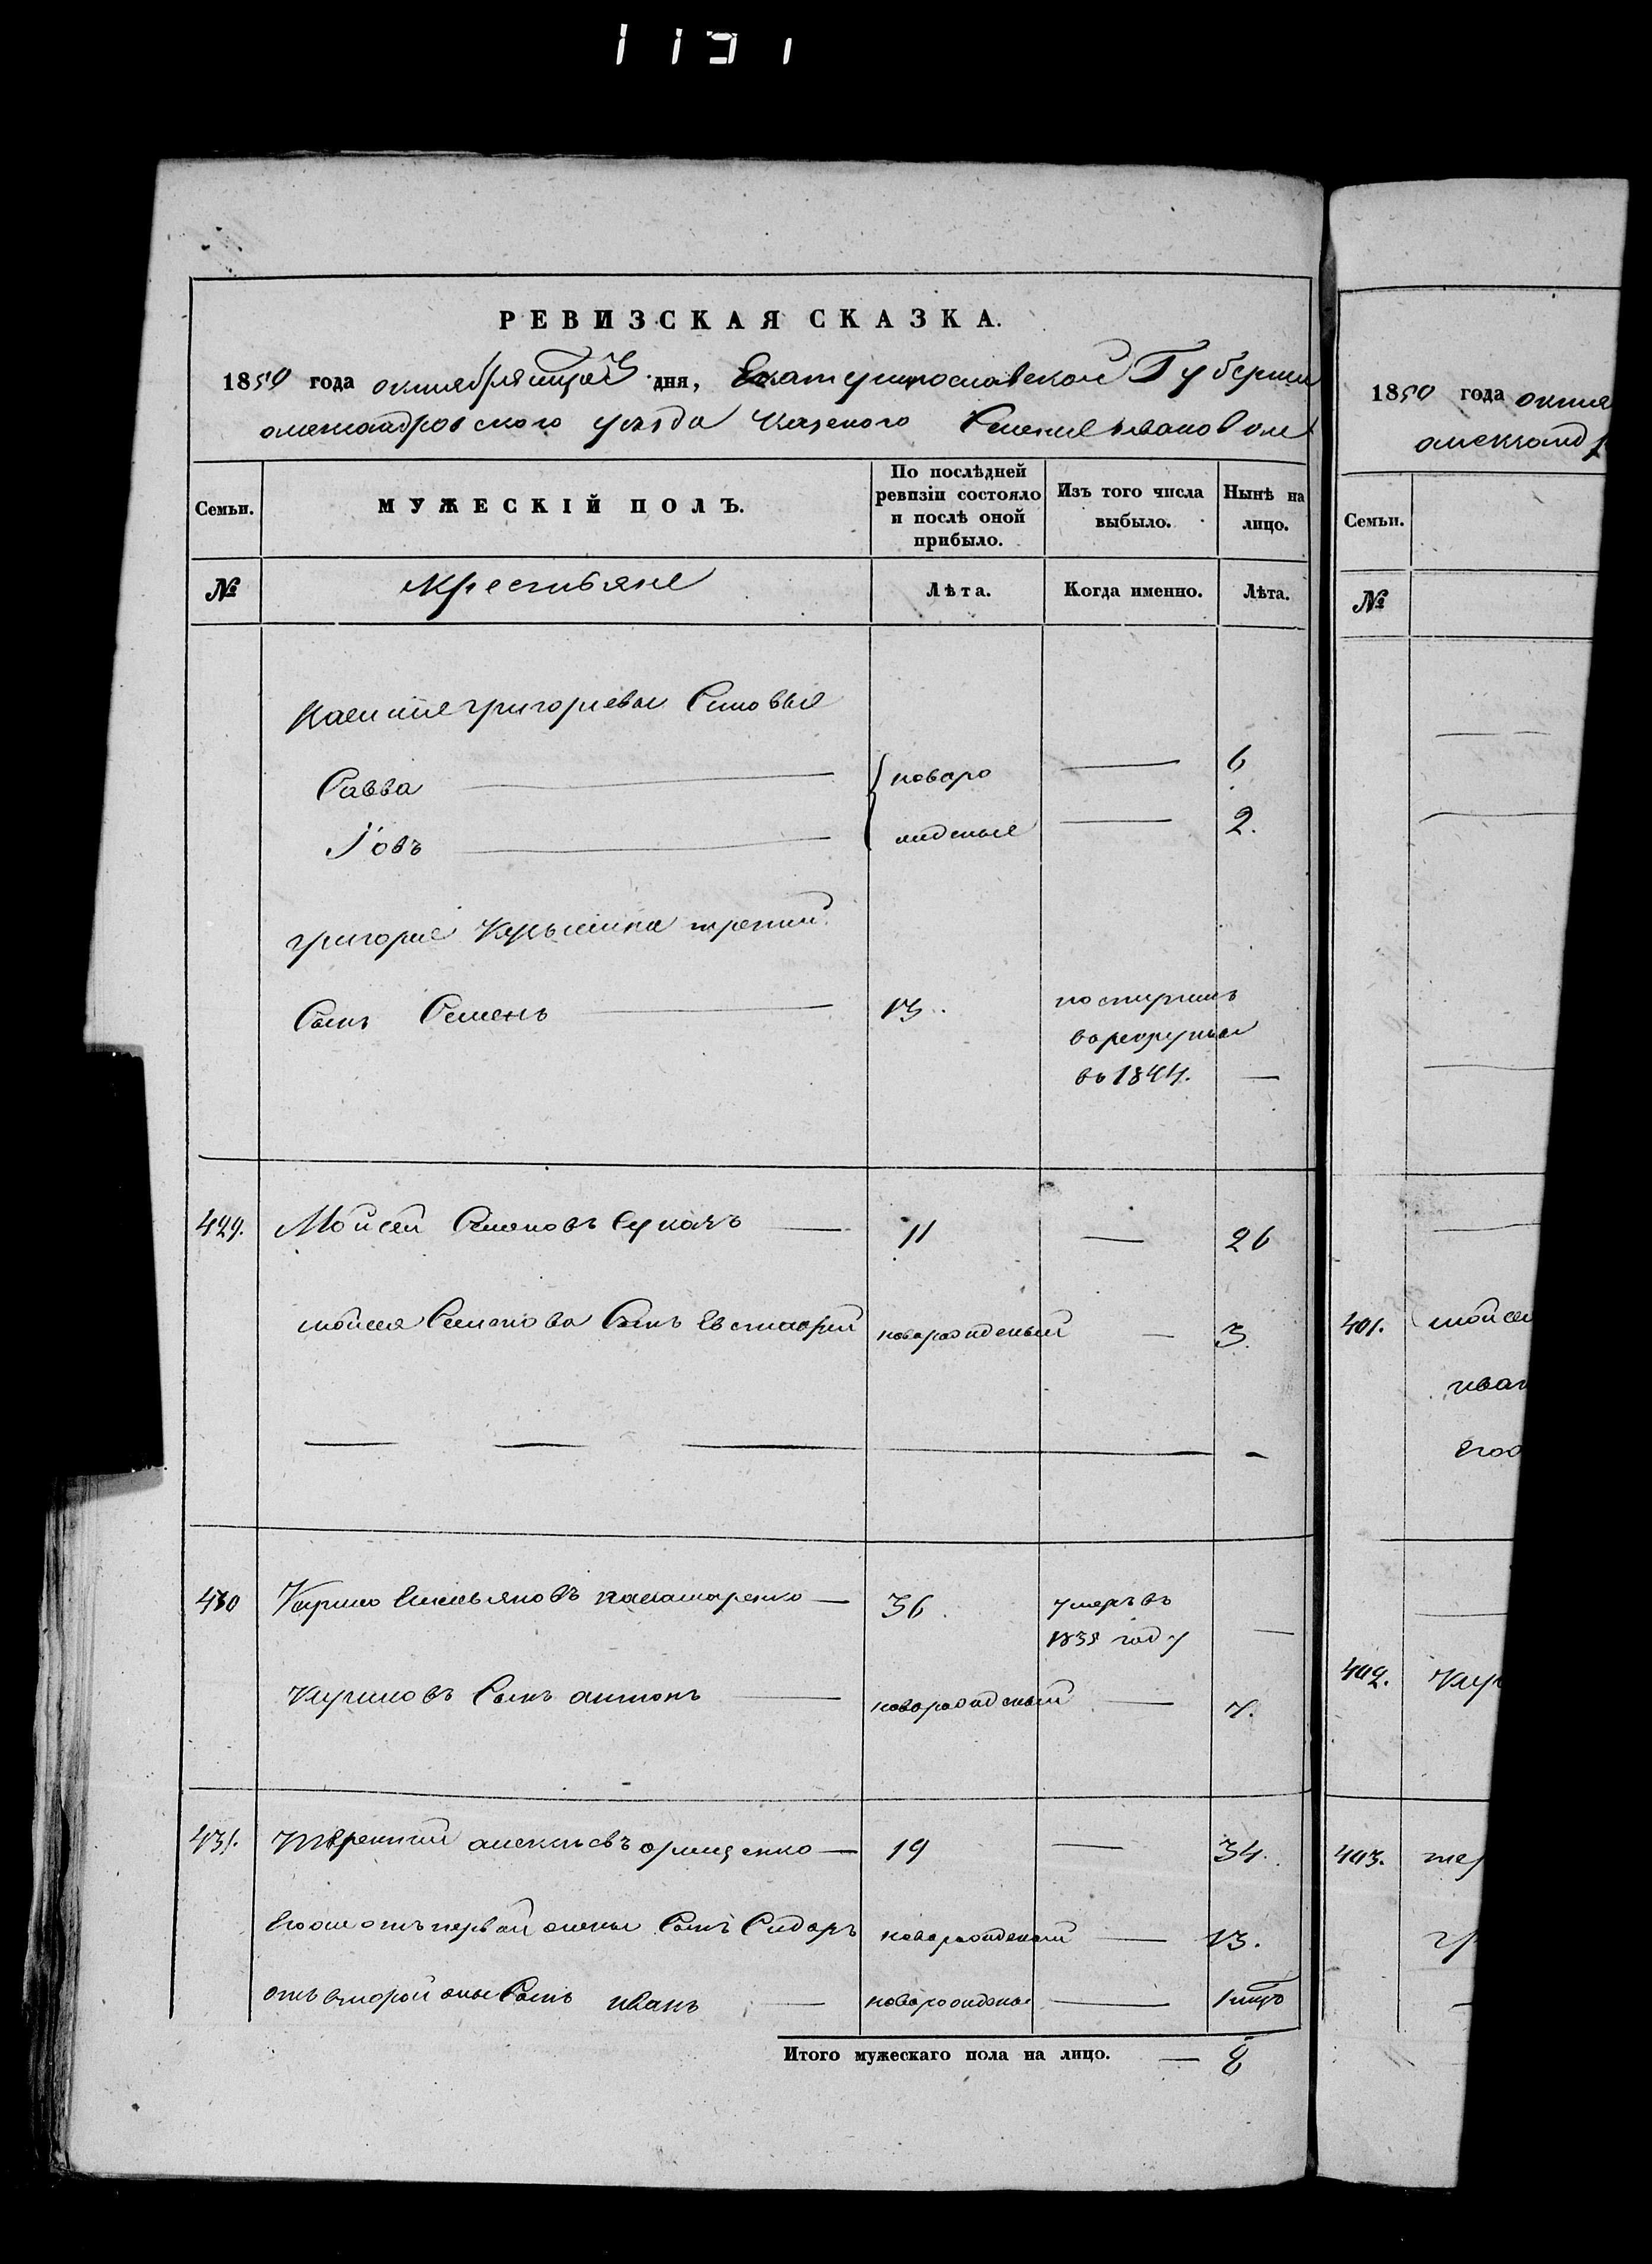 РЕВИЗСКАЯ СКАЗКА.
1850 года октября дня, Екатеринославской Губернии
александровского уезда Казеного Селения
Семьи.
МУЖЕСКІЙ ПОЛЪ.
По послѣдней ревизіи состояло и послѣ оной прибыло.
Изъ того числа выбыло.
Нынѣ на лицо.
№
Крестьяне
Лѣта.
Когда именно.
Лѣта.
григориевы Сыновья
Савва — новоро — 6
Іовъ — жденые — 2.
григорие третий
Сынъ Семенъ — 13. поступилъ
в рекруты
въ 1844. —
429. Мойсей Семеновъ — 11 — 26
мойсея Семенова Сынъ Евстафий новорожденый — 3.
430 Кирило Емельяновъ — 36. умеръ въ
1838 году —
Кириловъ Сынъ антонъ — новорожденый — 7.
431. Терентий алексеевъ — 19 — 34.
Егоже отъ первой жены Сынъ Сидоръ новорожденый — 13.
отъ второй жены Сынъ иванъ — новорожденый —
Итого мужескаго пола на лицо. — 8
1850 года октя
александр
Семьи.
№
401. мойсей
иван
его
402. Кир
403. тер
гр